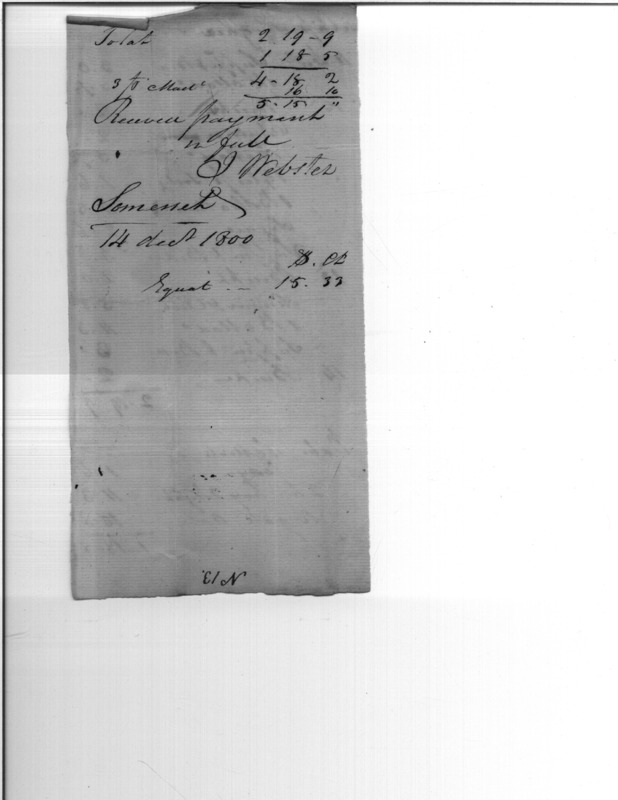 Total 2 19 - 9
1 18 5
4 - 18 2
16 10
5 - 15 "
Received payment
in full
J Webster
Somerset
14 dect 1800
$. Ct
Equal -- 15. 33
N 13